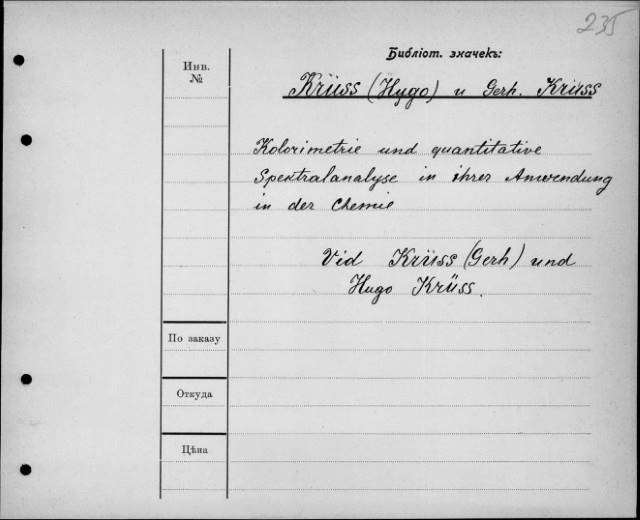 235
Библіот. значекъ:
Инв.
№
Krüss (Hygo) u Gerh. Krüss
Kolorimetrie und quantitative
Spektralanalyse in ihrer Anwendung
in der Chemie
Vid Krüss (Gerh) und
Hugo Krüss.
По заказу
Откуда
Цѣна